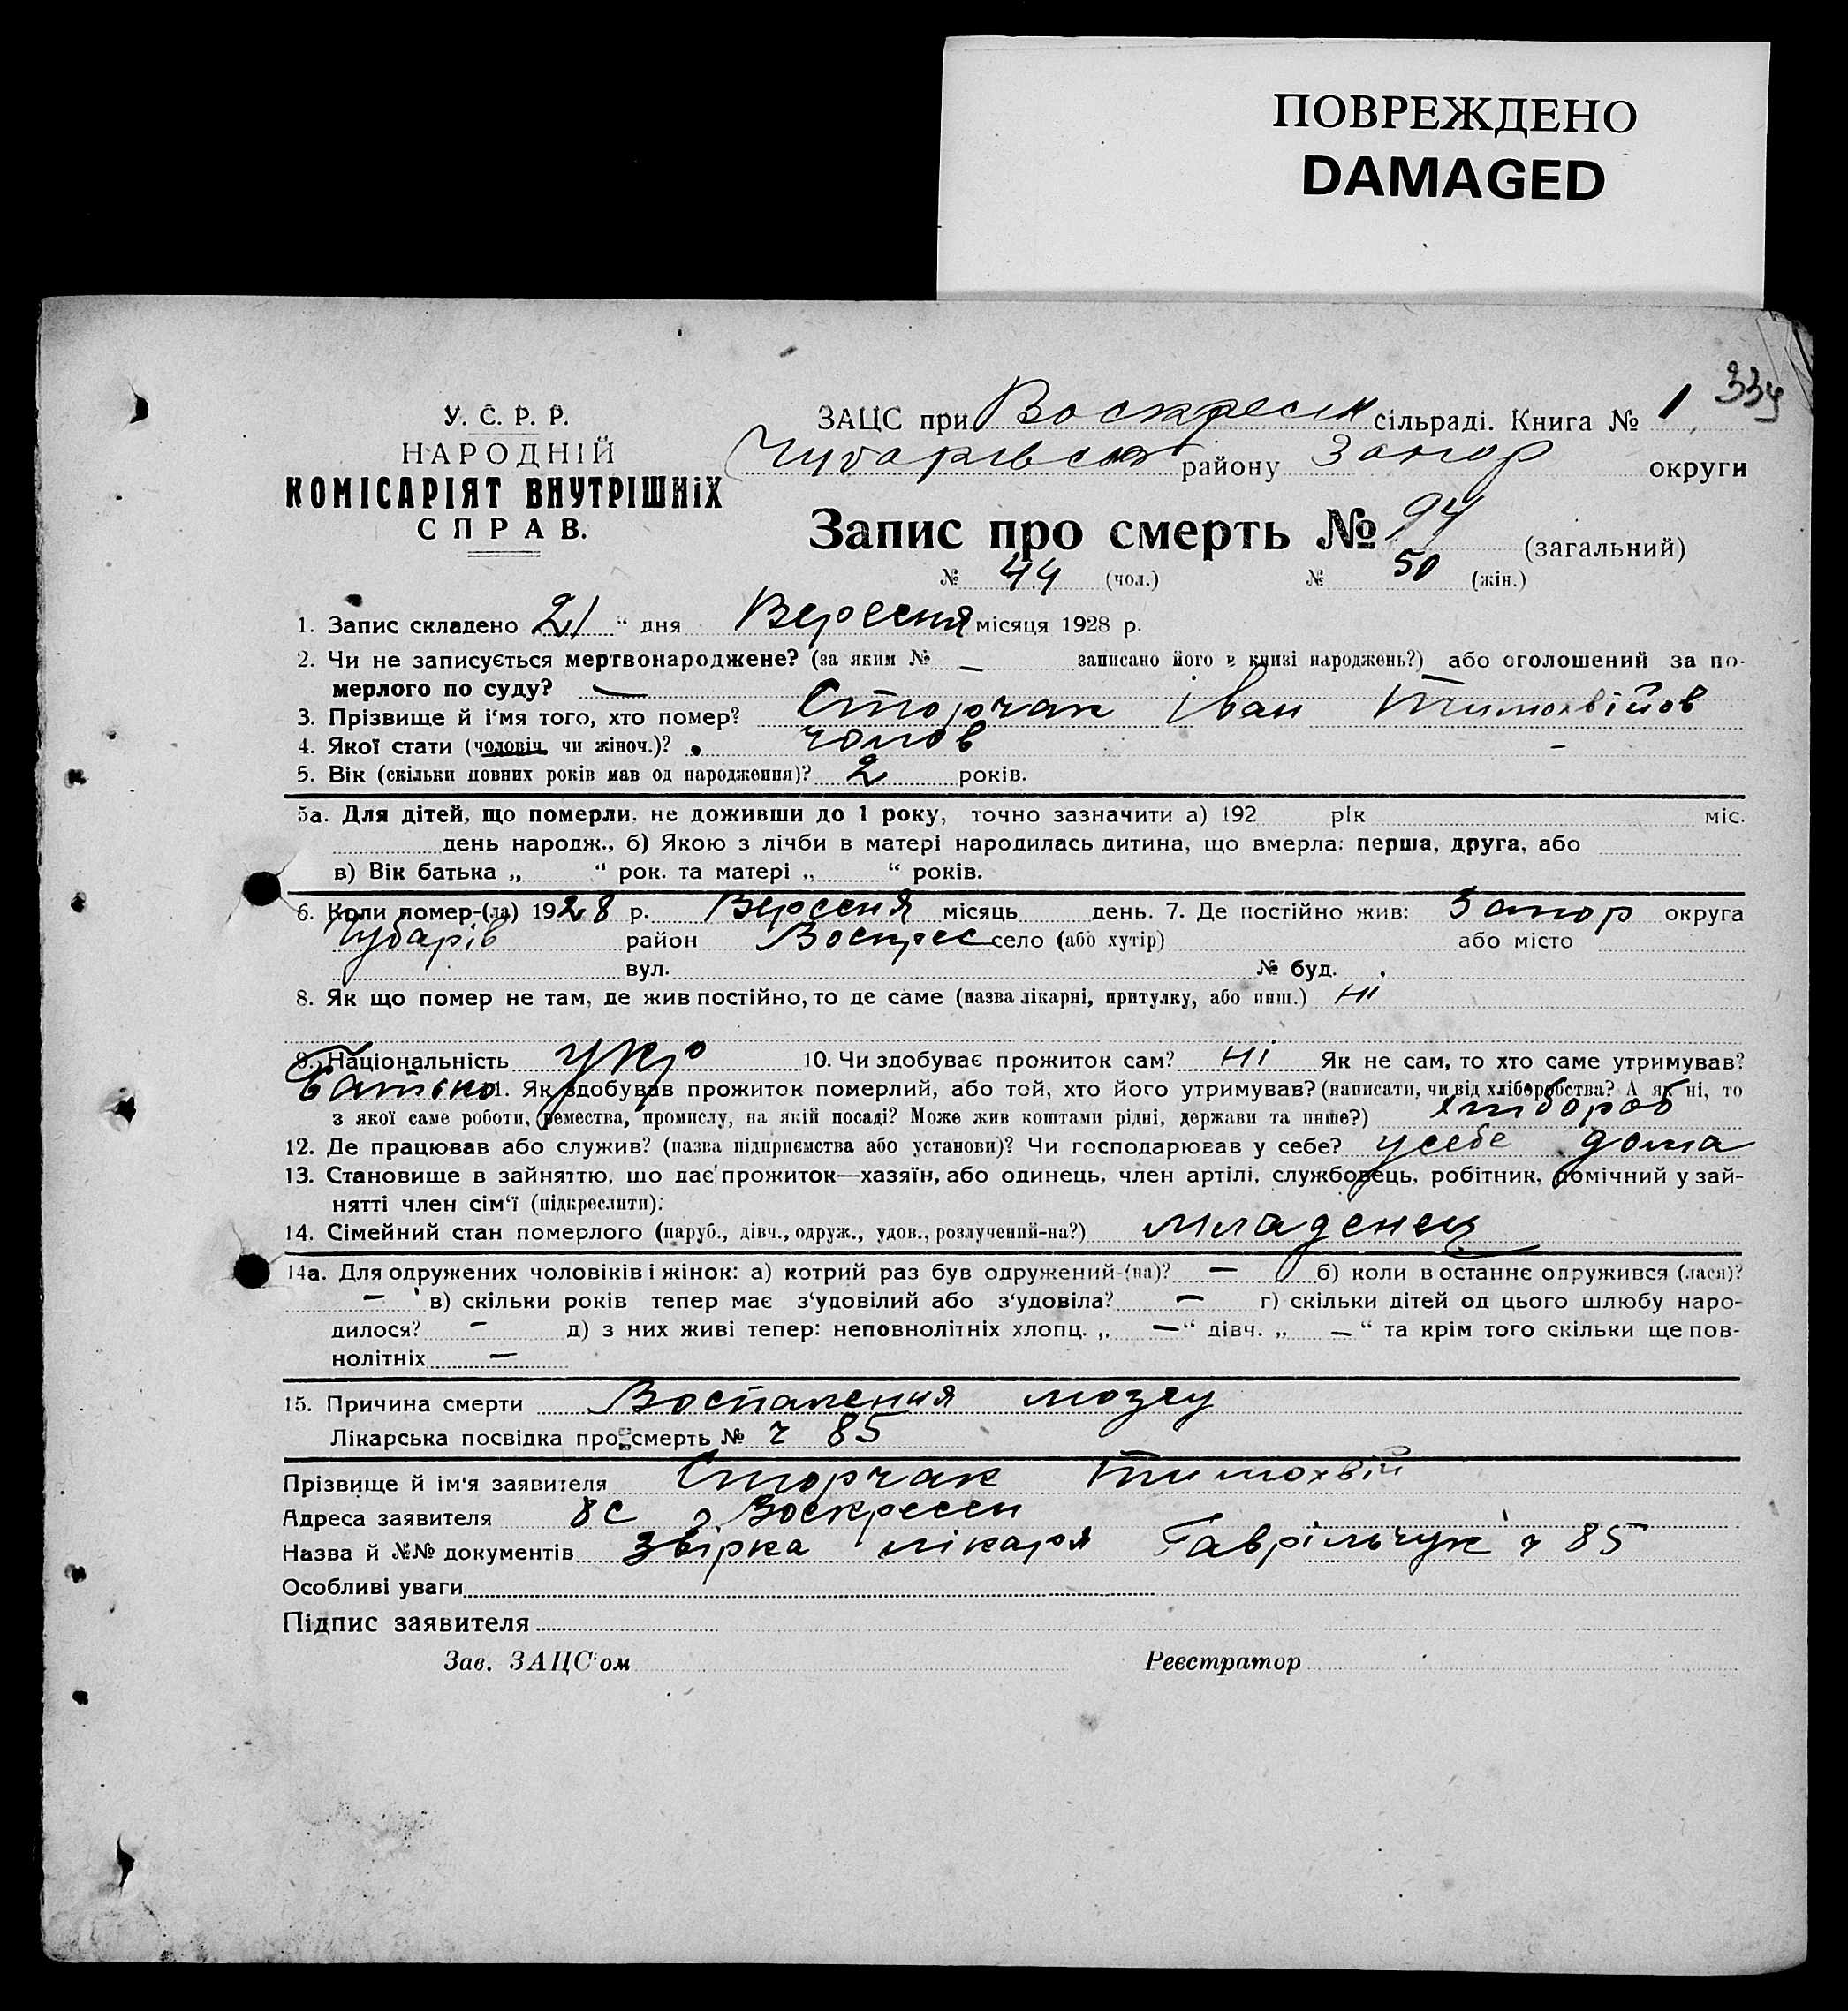 ПОВРЕЖДЕНО
DAMAGED
334
У. С. Р. Р.
НАРОДНІЙ
КОМІСАРІЯТ ВНУТРІШНІХ
СПРАВ.
ЗАЦС при Воскресен сільраді. Книга № 1
Чубарівськ району Запор округи
Запис про смерть № 94 (загальний)
№ 44 (чол.) № 50 (жін.)
1. Запис складено 21 “ дня Вересня місяця 1928 р.
2. Чи не записується мертвонароджене? (за яким № — записано його в книзі народжень?) або оголошений за по-
мерлого по суду? —
3. Прізвище й і‘мя того, хто помер? Сторчак Іван Тимохвійов
4. Якої стати (чоловіч. чи жіноч.)? чолов
5. Вік (скільки повних років мав од народження)? 2 років.
5а. Для дітей, що померли, не доживши до 1 року, точно зазначити а) 192 рік міс.
день народж., б) Якою з лічби в матері народилась дитина, що вмерла: перша, друга, або
в) Вік батька „ “ рок. та матері „ “ років.
6. Коли помер-(ла) 1928 р. Вересня місяць день. 7. Де постійно жив: Запор округа
Чубарів район Воскрес село (або хутір) або місто
вул. № буд.
8. Як що помер не там, де жив постійно, то де саме (назва лікарні, притулку, або инш.) ні
9. Національність укр 10. Чи здобуває прожиток сам? ні Як не сам, то хто саме утримував?
батько 11. Як здобував прожиток померлий, або той, хто його утримував? (написати, чи від хліборобства? А як ні, то
з якої саме роботи, ремества, промислу, на якій посаді? Може жив коштами рідні, держави та инше?) хлібороб
12. Де працював або служив? (назва підприємства або установи)? Чи господарював у себе? усебе дома
13. Становище в зайняттю, що дає прожиток—хазяїн, або одинець, член артілі, службовець, робітник, помічний у зай-
нятті член сім‘ї (підкреслити):
14. Сімейний стан померлого (паруб., дівч., одруж., удов., розлучений-на?) младенец
14а. Для одружених чоловіків і жінок: а) котрий раз був одружений-(на)? — б) коли в останнє одружився (лася)?
— в) скільки років тепер має з‘удовілий або з‘удовіла? — г) скільки дітей од цього шлюбу наро-
дилося? — д) з них живі тепер: неповнолітніх хлопц. „ — “ дівч. „ — “ та крім того скільки ще пов-
нолітніх —
15. Причина смерти Воспаления мозгу
Лікарська посвідка про смерть № ч 85
Прізвище й ім‘я заявителя Сторчак Тимохвій
Адреса заявителя с Воскресен
Назва й №№ документів Звірка лікаря Гаврільчук ч 85
Особливі уваги
Підпис заявителя
Зав. ЗАЦС‘ом Реєстратор